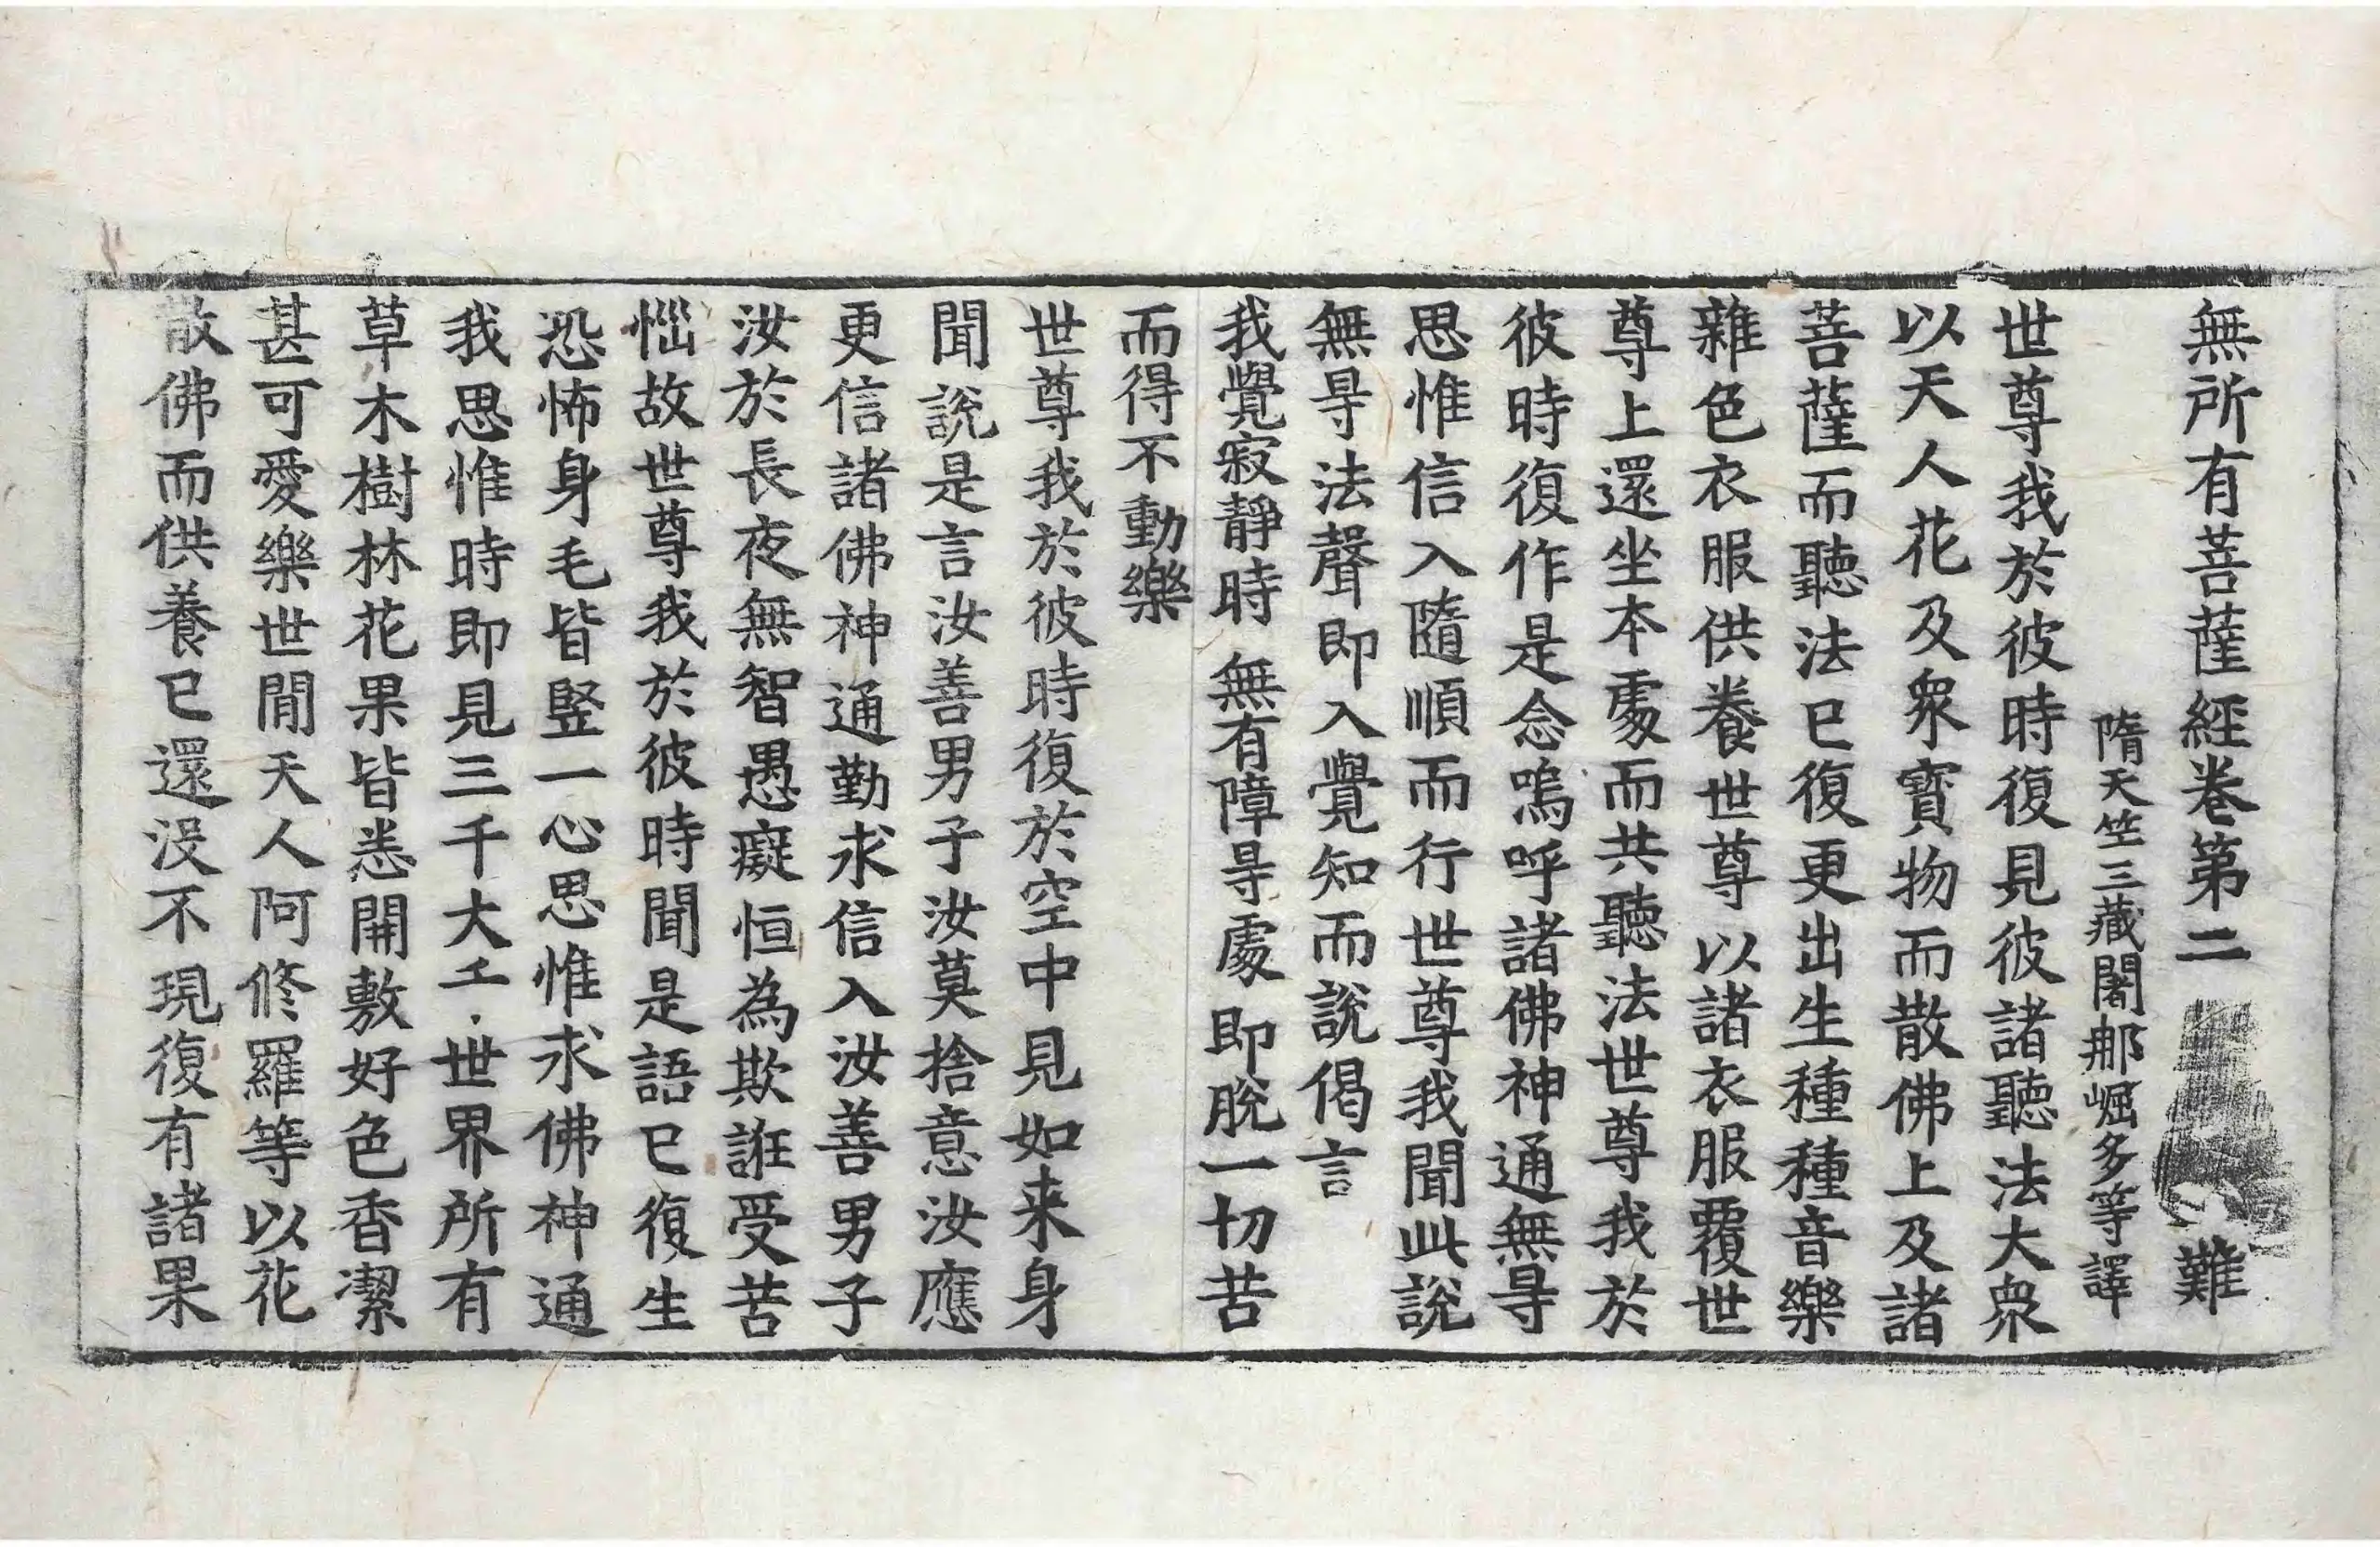 無所有菩薩經卷第二 難
隋天竺三藏闍那崛多等譯
世尊我於彼時復見彼諸聽法大衆
以天人花及衆寶物而散佛上及諸
菩薩而聽法已復更出生種種音樂
雜色衣服供養世尊以諸衣服覆世
尊上還坐本處而共聽法世尊我於
彼時復作是念嗚呼諸佛神通無㝵
思惟信入隨順而行世尊我聞此說
無㝵法聲即入覺知而說偈言
我覺寂靜時 無有障㝵處 即脫一切苦
而得不動樂
世尊我於彼時復於空中見如来身
聞說是言汝善男子汝莫捨意汝應
更信諸佛神通勤求信入汝善男子
汝於長夜無智愚癡恒為欺誑受苦
惱故世尊我於彼時聞是語已復生
恐怖身毛皆竪一心思惟求佛神通
我思惟時即見三千大千世界所有
草木樹林花果皆悉開敷好色香潔
甚可愛樂世閒天人阿修羅等以花
散佛而供養已還没不現復有諸果